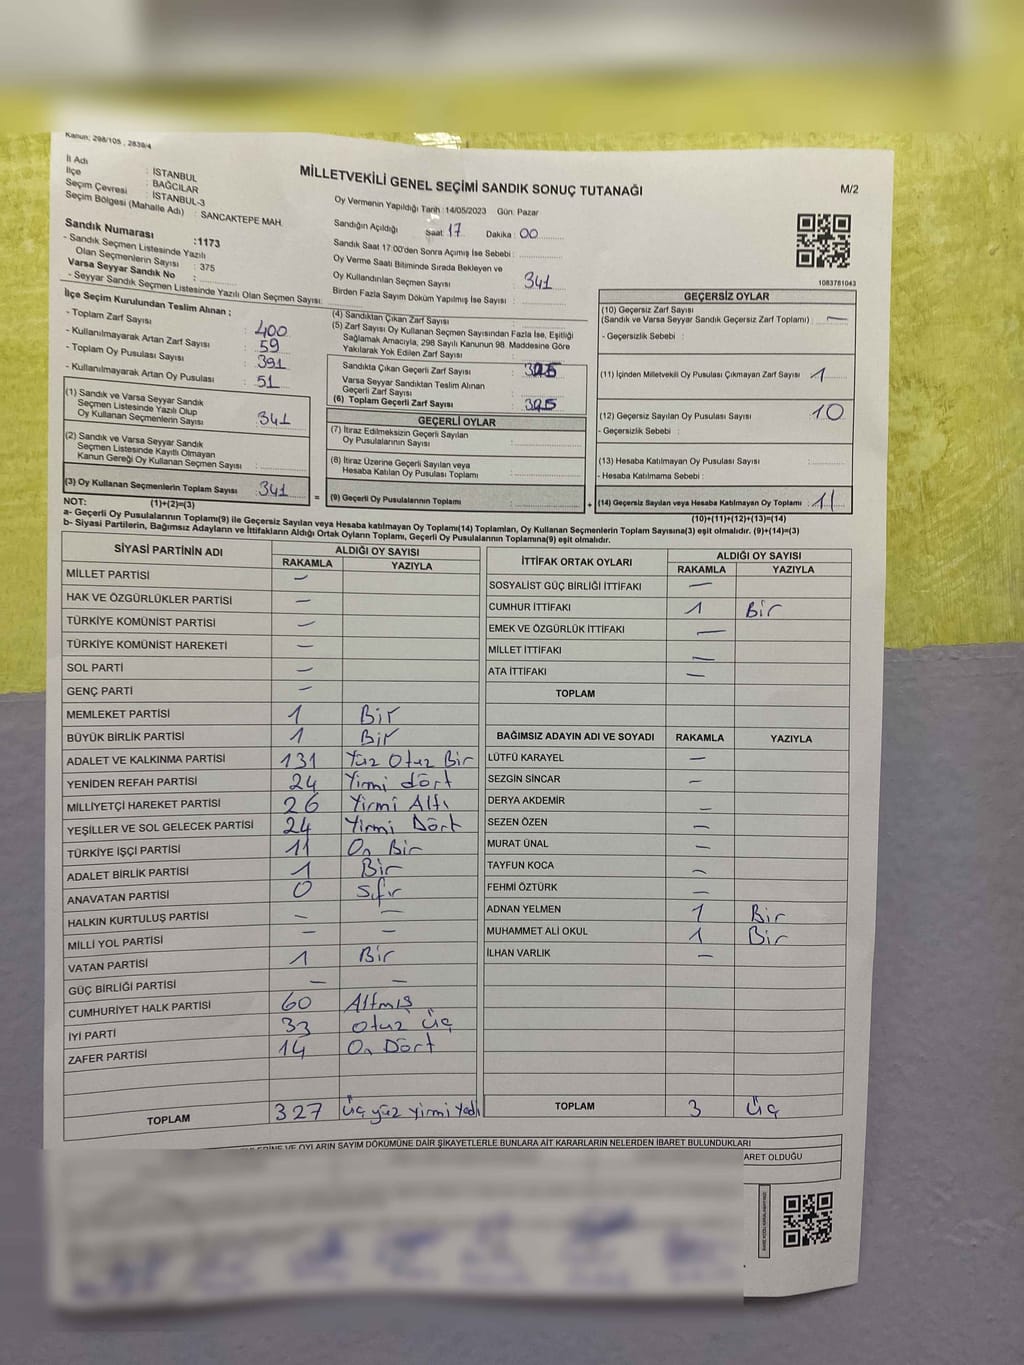 Kanun: 298/105 , 2839/4
İl Adı : İSTANBUL
İlçe : BAĞCILAR
Seçim Çevresi : İSTANBUL-3
Seçim Bölgesi (Mahalle Adı) : SANCAKTEPE MAH.
MİLLETVEKİLİ GENEL SEÇİMİ SANDIK SONUÇ TUTANAĞI
M/2
Oy Vermenin Yapıldığı Tarih :14/05/2023 Gün: Pazar
Sandığın Açıldığı Saat 17 Dakika : 00
Sandık Saat 17:00'den Sonra Açımış İse Sebebi :
Oy Verme Saati Bitiminde Sırada Bekleyen ve
Oy Kullandırılan Seçmen Sayısı : 341
Birden Fazla Sayım Döküm Yapılmış İse Sayısı :
Sandık Numarası :1173
- Sandık Seçmen Listesinde Yazılı
Olan Seçmenlerin Sayısı : 375
Varsa Seyyar Sandık No :
- Seyyar Sandık Seçmen Listesinde Yazılı Olan Seçmen Sayısı:
1083781043
İlçe Seçim Kurulundan Teslim Alınan ;
- Toplam Zarf Sayısı : 400
- Kullanılmayarak Artan Zarf Sayısı : 59
- Toplam Oy Pusulası Sayısı : 391
- Kullanılmayarak Artan Oy Pusulası : 51
(1) Sandık ve Varsa Seyyar Sandık
Seçmen Listesinde Yazılı Olup
Oy Kullanan Seçmenlerin Sayısı : 341
(2) Sandık ve Varsa Seyyar Sandık
Seçmen Listesinde Kayıtlı Olmayan
Kanun Gereği Oy Kullanan Seçmen Sayısı :
(3) Oy Kullanan Seçmenlerin Toplam Sayısı : 341
(1)+(2)=(3)
(4) Sandıktan Çıkan Zarf Sayısı :
(5) Zarf Sayısı Oy Kullanan Seçmen Sayısından Fazla İse, Eşitliği
Sağlamak Amacıyla, 298 Sayılı Kanunun 98. Maddesine Göre
Yakılarak Yok Edilen Zarf Sayısı :
Sandıkta Çıkan Geçerli Zarf Sayısı :
Varsa Seyyar Sandıktan Teslim Alınan
Geçerli Zarf Sayısı :
(6) Toplam Geçerli Zarf Sayısı :
GEÇERLİ OYLAR
(7) İtiraz Edilmeksizin Geçerli Sayılan
Oy Pusulalarının Sayısı :
(8) İtiraz Üzerine Geçerli Sayılan veya
Hesaba Katılan Oy Pusulası Toplamı :
= (9) Geçerli Oy Pusulalarının Toplamı :
GEÇERSİZ OYLAR
(10) Geçersiz Zarf Sayısı
(Sandık ve Varsa Seyyar Sandık Geçersiz Zarf Toplamı) : —
- Geçersizlik Sebebi :
(11) İçinden Milletvekili Oy Pusulası Çıkmayan Zarf Sayısı : 1
(12) Geçersiz Sayılan Oy Pusulası Sayısı : 10
- Geçersizlik Sebebi :
(13) Hesaba Katılmayan Oy Pusulası Sayısı :
- Hesaba Katılmama Sebebi :
+ (14) Geçersiz Sayılan veya Hesaba Katılmayan Oy Toplamı : 11
(10)+(11)+(12)+(13)=(14)
NOT:
a- Geçerli Oy Pusulalarının Toplamı(9) ile Geçersiz Sayılan veya Hesaba katılmayan Oy Toplamı(14) Toplamları, Oy Kullanan Seçmenlerin Toplam Sayısına(3) eşit olmalıdır. (9)+(14)=(3)
b- Siyasi Partilerin, Bağımsız Adayların ve İttifakların Aldığı Ortak Oyların Toplamı, Geçerli Oy Pusulalarının Toplamına(9) eşit olmalıdır.
SİYASİ PARTİNİN ADI ALDIĞI OY SAYISI
RAKAMLA YAZIYLA
MİLLET PARTİSİ —
HAK VE ÖZGÜRLÜKLER PARTİSİ —
TÜRKİYE KOMÜNİST PARTİSİ —
TÜRKİYE KOMÜNİST HAREKETİ —
SOL PARTİ —
GENÇ PARTİ —
MEMLEKET PARTİSİ 1 Bir
BÜYÜK BİRLİK PARTİSİ 1 Bir
ADALET VE KALKINMA PARTİSİ 131 Yüz Otuz Bir
YENİDEN REFAH PARTİSİ 24 Yirmi dört
MİLLİYETÇİ HAREKET PARTİSİ 26 Yirmi Altı
YEŞİLLER VE SOL GELECEK PARTİSİ 24 Yirmi Dört
TÜRKİYE İŞÇİ PARTİSİ 11 On Bir
ADALET BİRLİK PARTİSİ 1 Bir
ANAVATAN PARTİSİ 0 Sıfır
HALKIN KURTULUŞ PARTİSİ — —
MİLLİ YOL PARTİSİ — —
VATAN PARTİSİ 1 Bir
GÜÇ BİRLİĞİ PARTİSİ — —
CUMHURİYET HALK PARTİSİ 60 Altmış
İYİ PARTİ 33 Otuz üç
ZAFER PARTİSİ 14 On Dört
TOPLAM 327 üç yüz yirmi yedi
İTTİFAK ORTAK OYLARI ALDIĞI OY SAYISI
RAKAMLA YAZIYLA
SOSYALİST GÜÇ BİRLİĞİ İTTİFAKI —
CUMHUR İTTİFAKI 1 Bir
EMEK VE ÖZGÜRLÜK İTTİFAKI —
MİLLET İTTİFAKI —
ATA İTTİFAKI —
TOPLAM
BAĞIMSIZ ADAYIN ADI VE SOYADI RAKAMLA YAZIYLA
LÜTFÜ KARAYEL —
SEZGİN SİNCAR —
DERYA AKDEMİR —
SEZEN ÖZEN —
MURAT ÜNAL —
TAYFUN KOCA —
FEHMİ ÖZTÜRK —
ADNAN YELMEN 1 Bir
MUHAMMET ALİ OKUL 1 Bir
İLHAN VARLIK —
TOPLAM 3 üç
VE OYLARIN SAYIM DÖKÜMÜNE DAİR ŞİKAYETLERLE BUNLARA AİT KARARLARIN NELERDEN İBARET BULUNDUKLARI
OLDUĞU